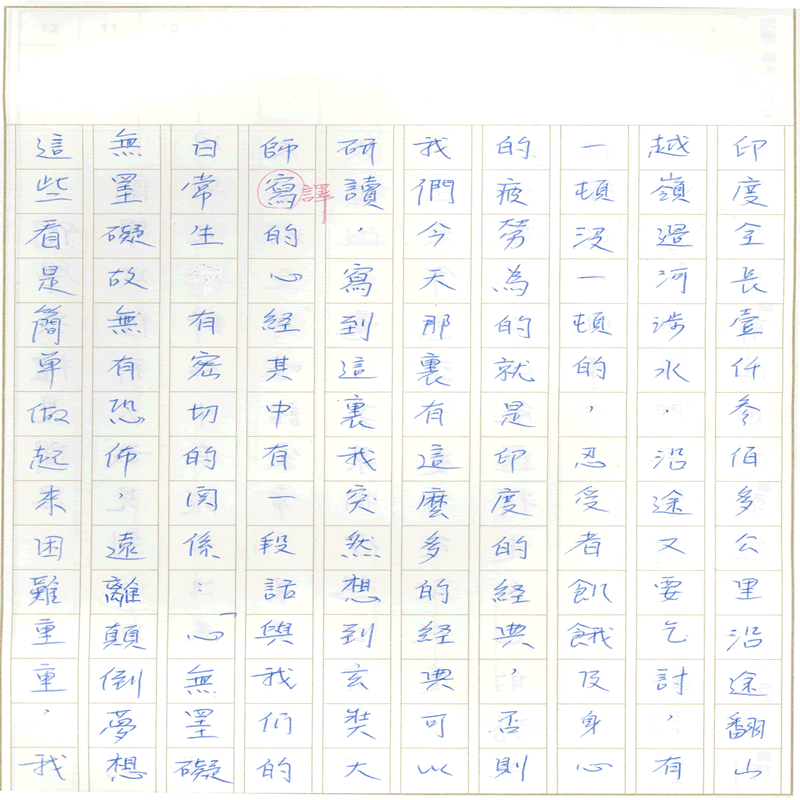 印度全長壹仟参佰多公里沿途翻山
越嶺過河涉水,沿途又要乞討,有
一頓沒一頓的,忍受者飢餓及身心
的疲勞為的就是印度的經典,否則
我們今天那裏有這麼多的經典可以
研讀,寫到這裏我突然想到玄奘大
師寫譯的心経其中有一段話與我们的
日常生 有密切的関係:「心無罣礙
無罣礙故無有恐佈,遠離顛倒夢想
這些看是簡單做起來困難重重,我